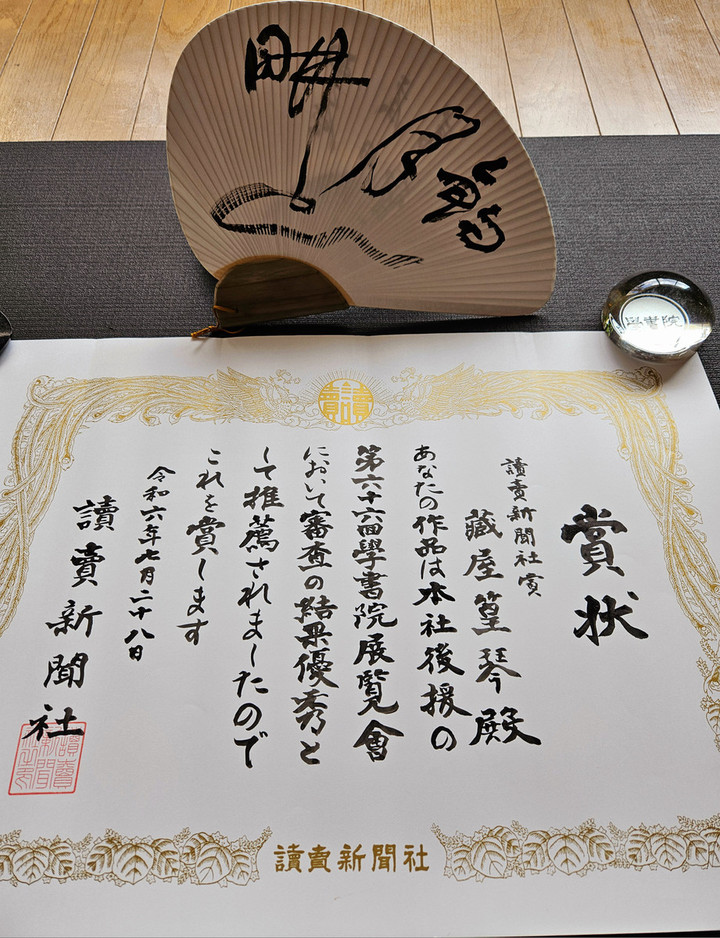 賞状
讀賣新聞社賞
藏屋篁琴殿
あなたの作品は本社後援の
第六十六回學書院展覧會
において審査の結果優秀と
して推薦されましたので
これを賞します
令和六年七月二十八日
讀賣新聞社
讀賣新聞社